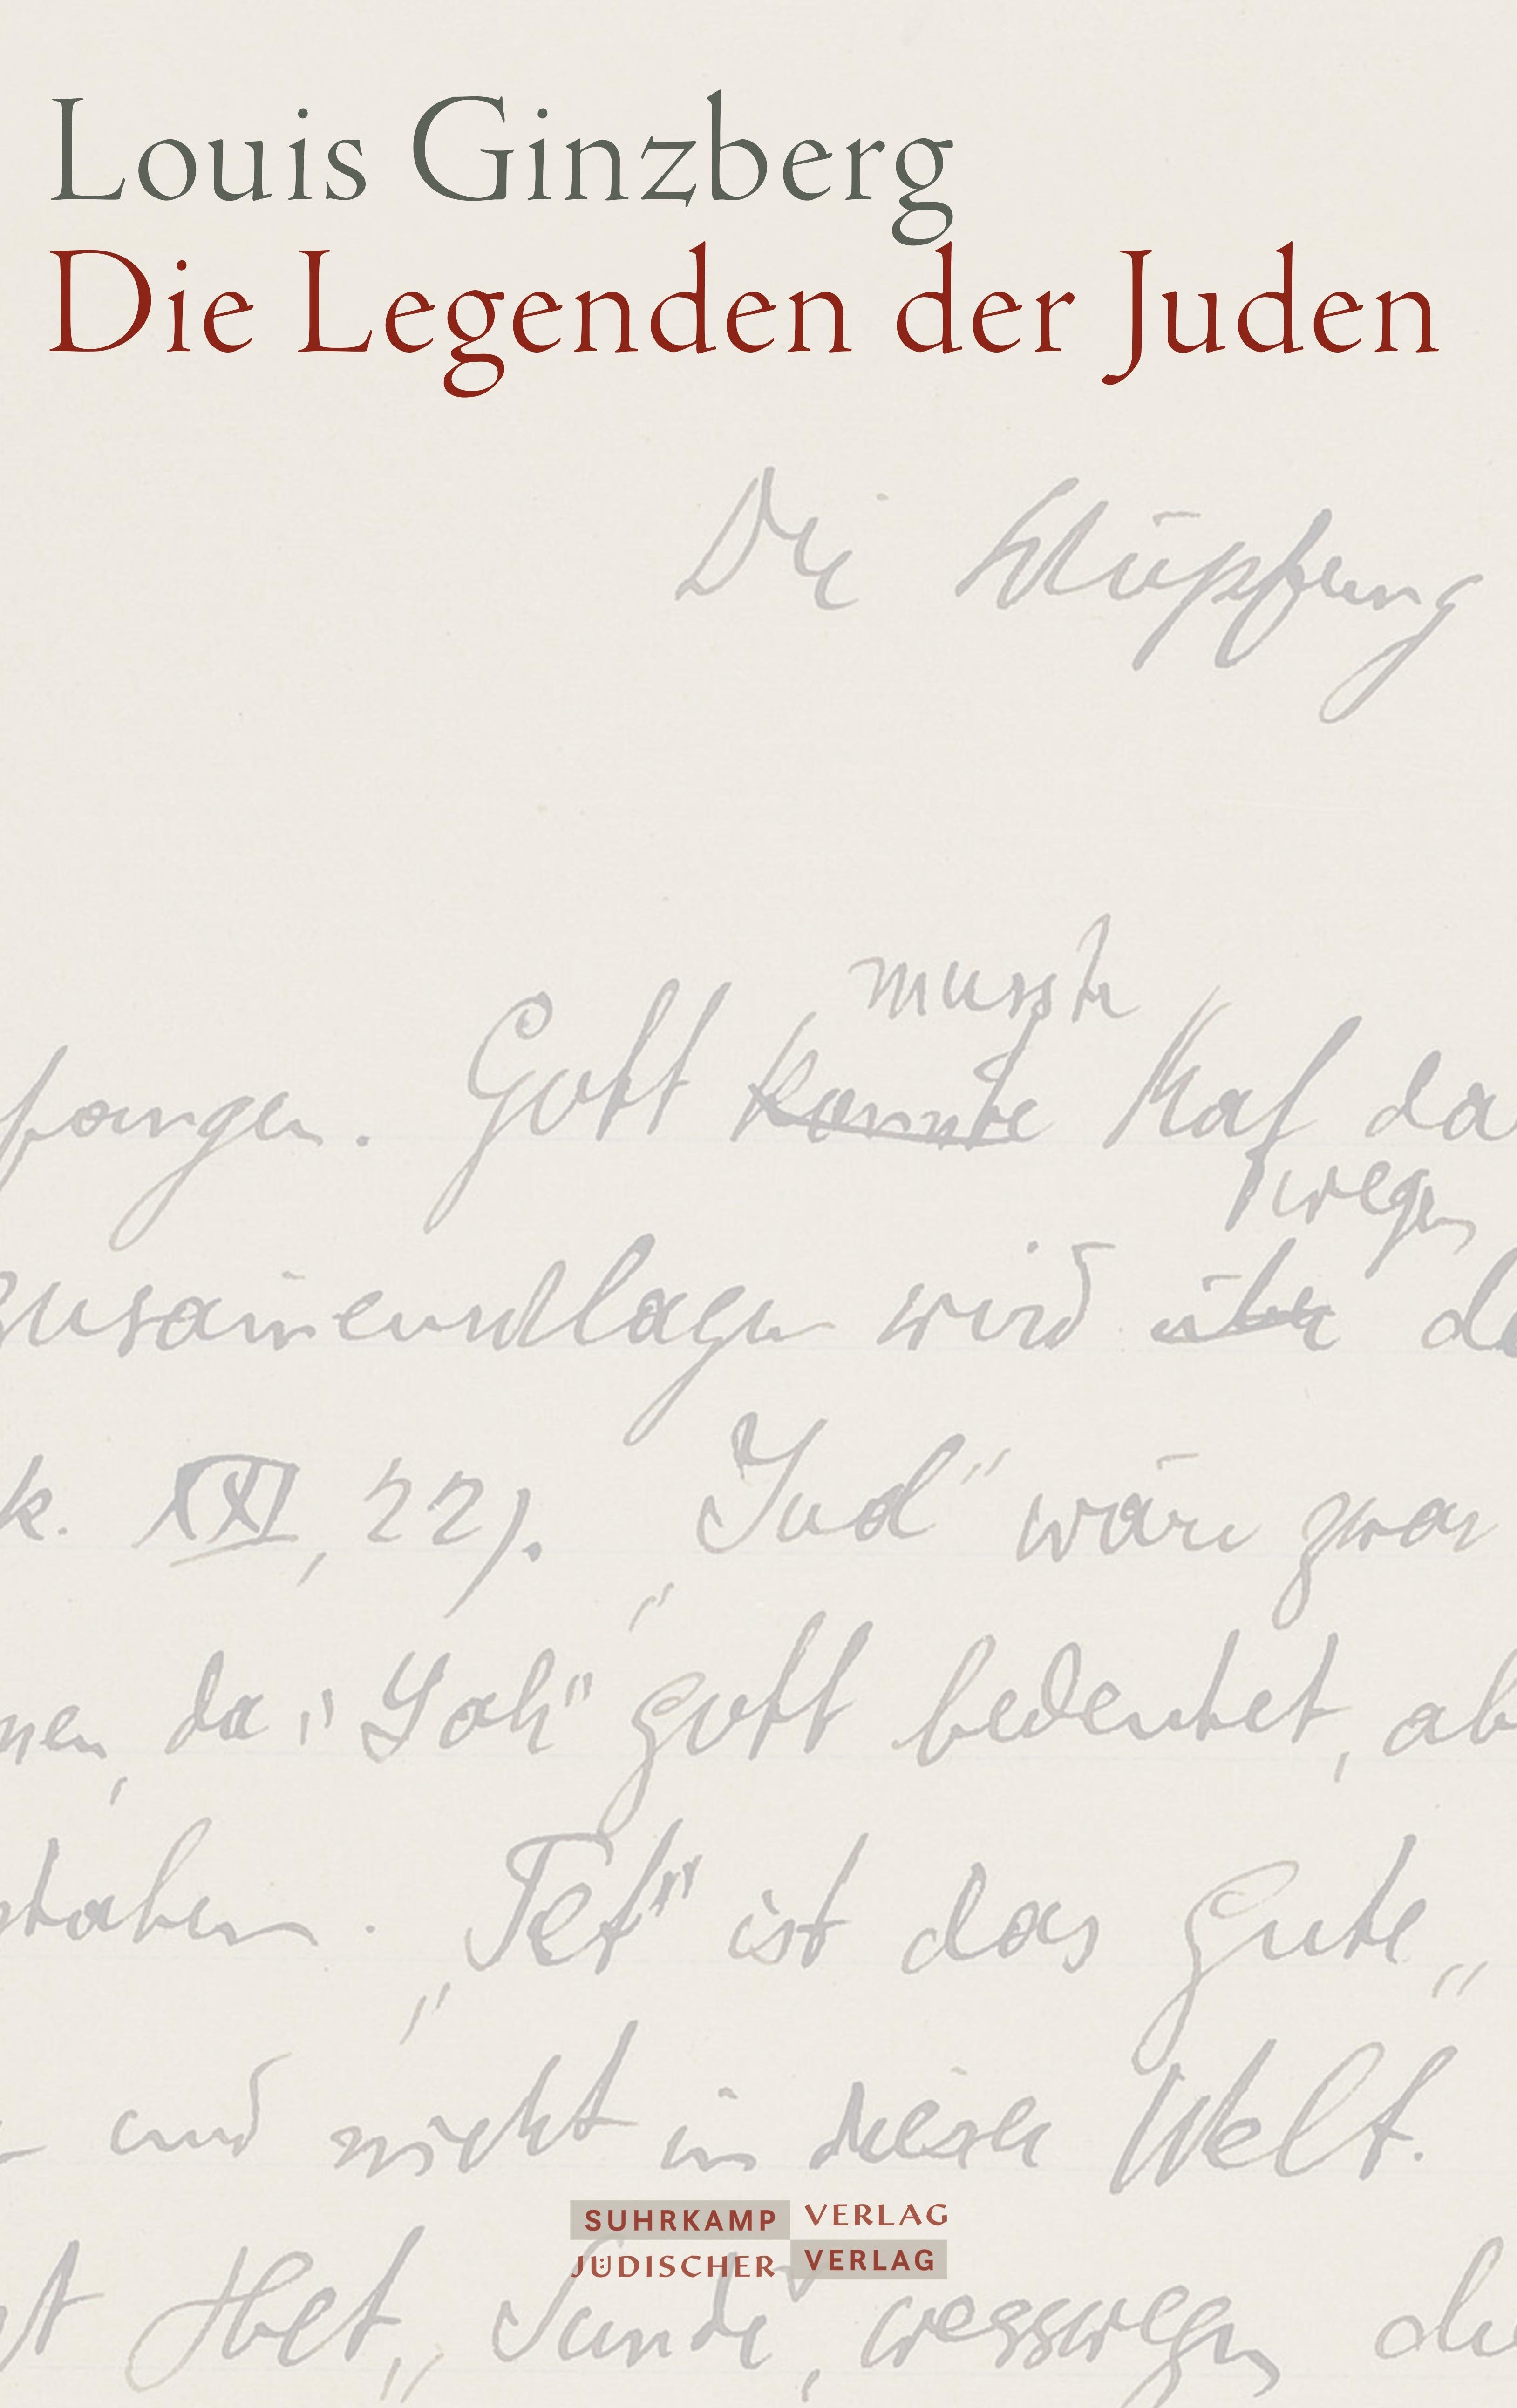 Louis Ginzberg
Die Legenden der Juden
Die
musste
fangen. Gott konnte Kaf da
wegen
zusam̄enschlagen wird über de
k. XXI, 22). „Jud" wäre zwar
nen, da „Yah" Gott bedeutet, ab
staben. „Tet" ist das Gute „
und nicht in dieser Welt.
SUHRKAMP VERLAG
JÜDISCHER VERLAG
Het „ Sünde, wesswegen die